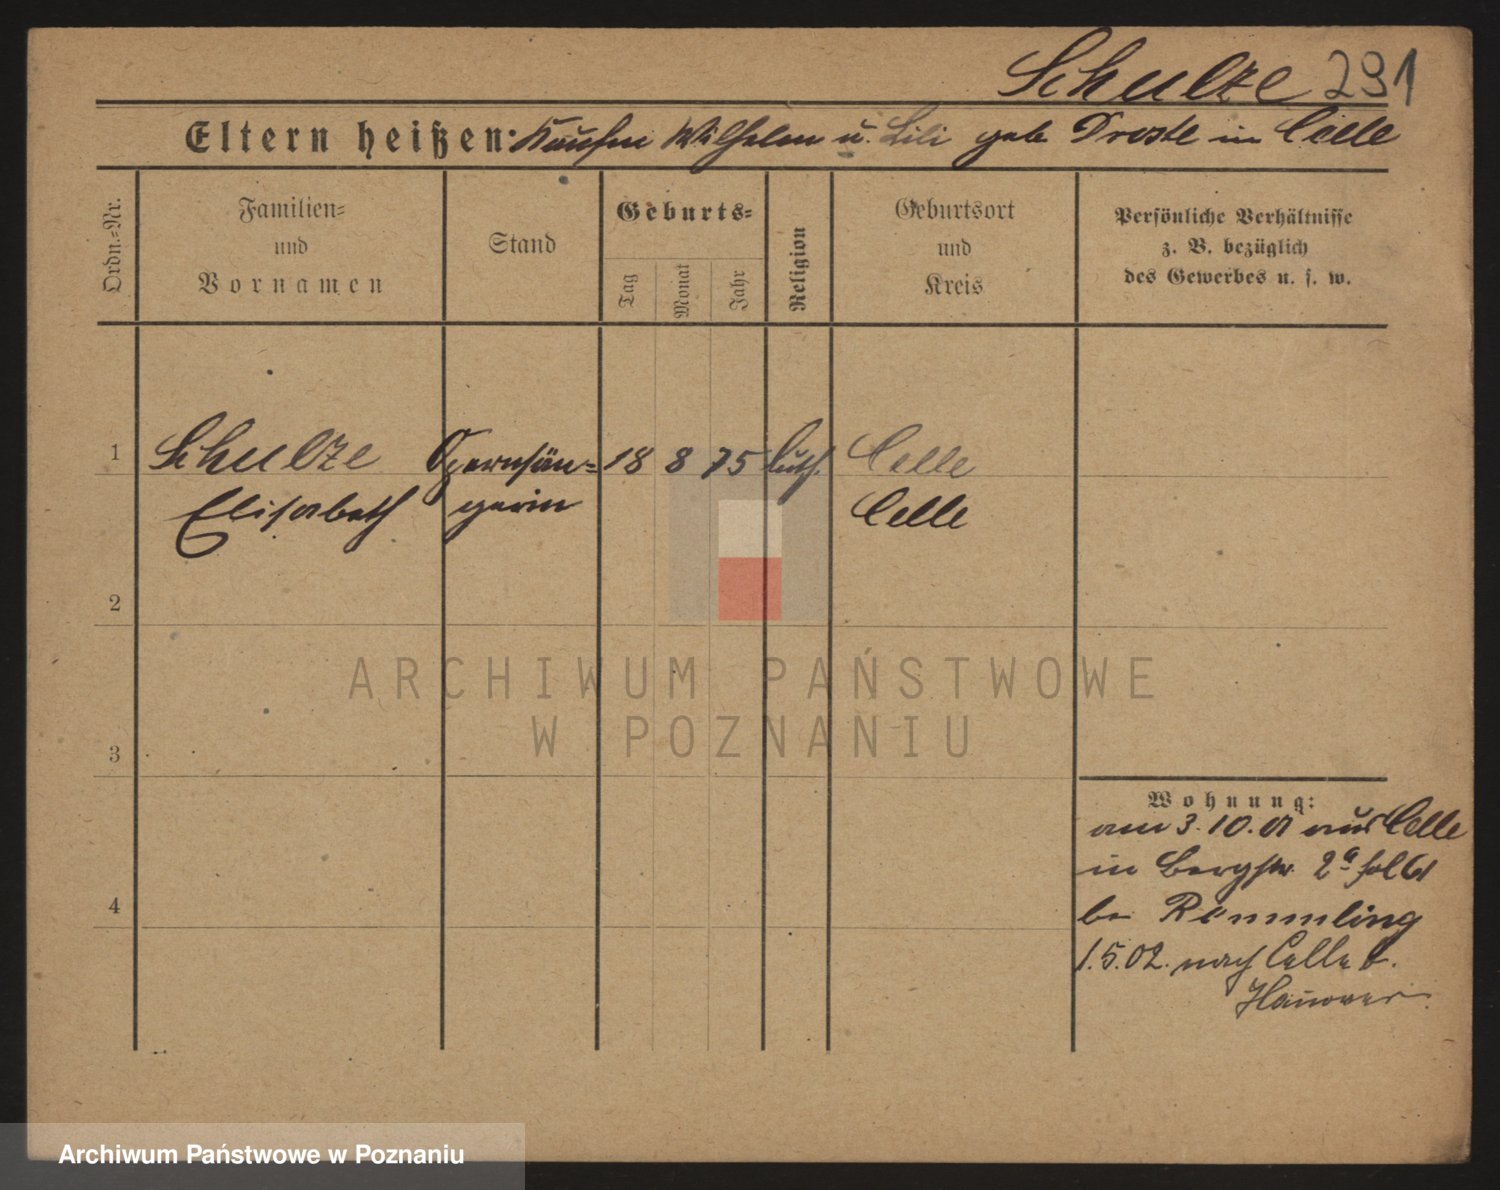 Schulze 291
Eltern heißen: Kaufm Wilhelm u. Lili geb Droste in Celle
Ordn.=Nr.
Familien=
und
Vornamen
Stand
Geburts=
Tag
Monat
Jahr
Religion
Geburtsort
und
Kreis
Persönliche Verhältnisse
z. B. bezüglich
des Gewerbes u. s. w.
1 Schulze Opernsän= 18 8 75 luth. Celle
Elisabeth gerin Celle
2
3
4
Wohnung:
am 3.10.01 aus Celle
in Bergstr. 2a
bei Remmling
1.5.02. nach Celle b.
Hanover
ARCHIWUM PAŃSTWOWE
W POZNANIU
Archiwum Państwowe w Poznaniu